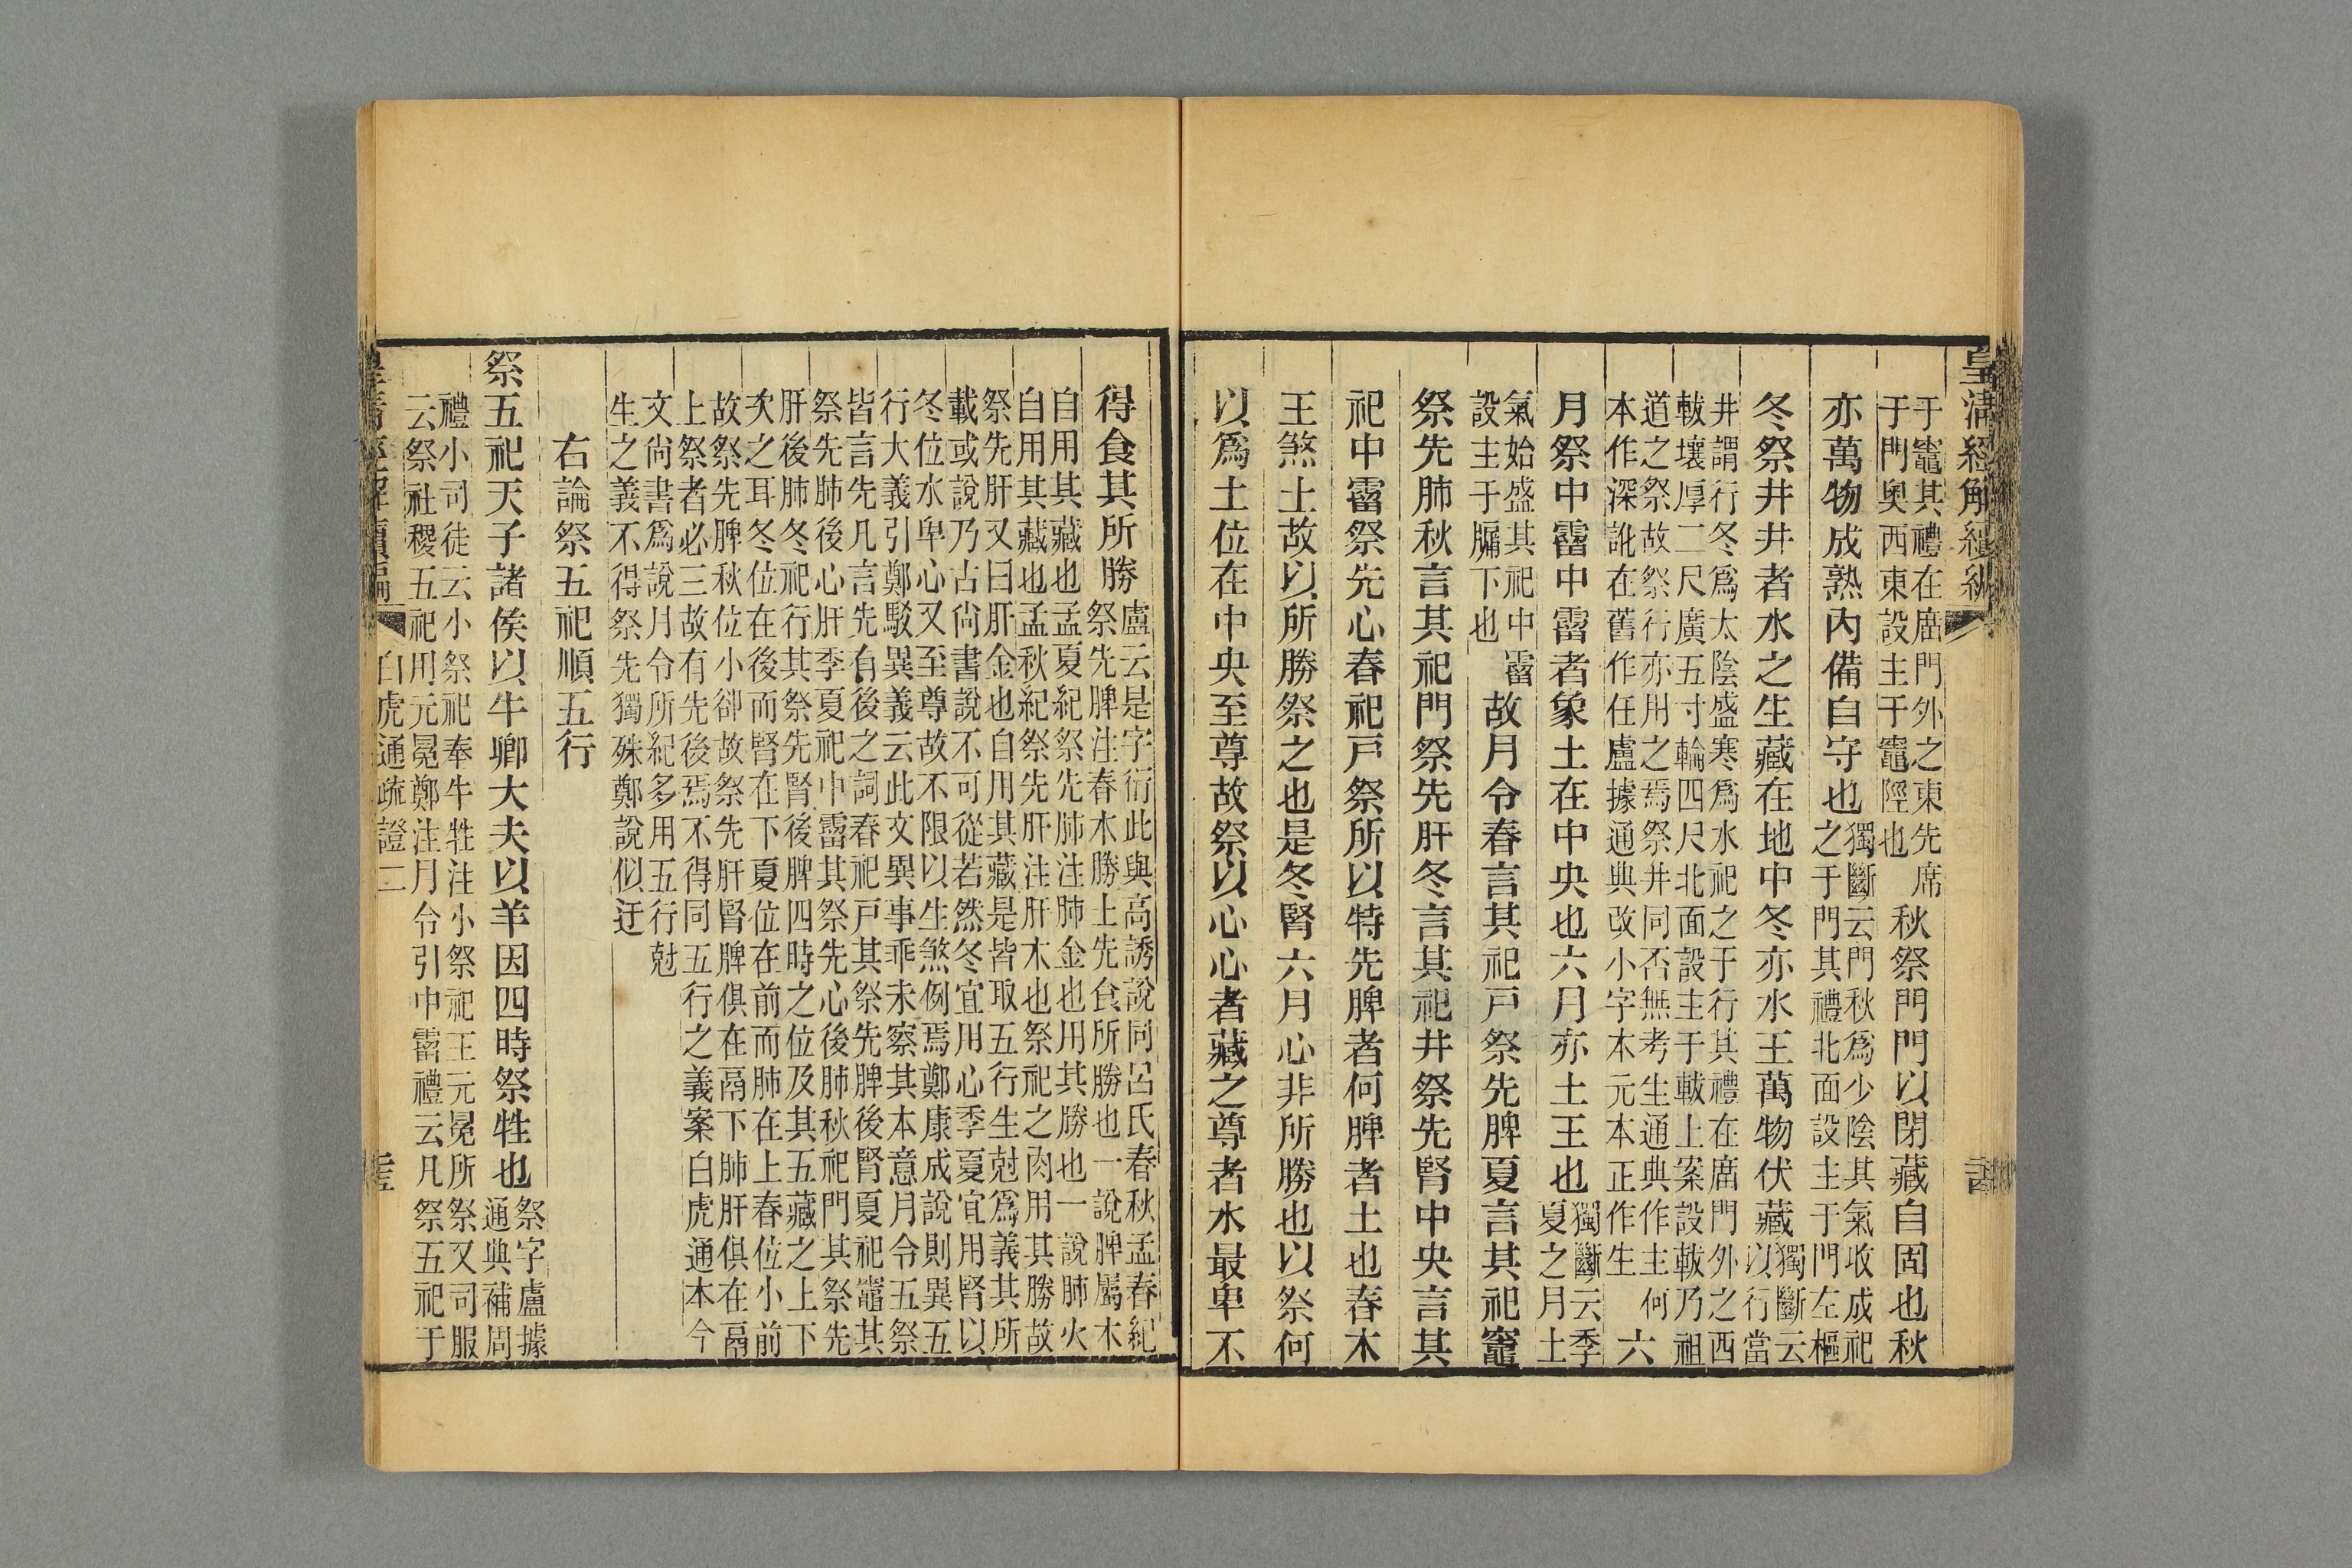 皇清經解續編
于竈其禮在廟門外之東先席
于門奧西東設主于竈陘也
秋祭門門以閉藏自固也秋
亦萬物成熟內備自守也
獨斷云門秋爲少陰其氣收成祀
之于門其禮北面設主于門左樞
冬祭井井者水之生藏在地中冬亦水王萬物伏藏
獨斷云
以行當
井謂行冬爲太陰盛寒爲水祀之于行其禮在廟門外之西
軷壤厚二尺廣五寸輪四尺北面設主于軷上案設軷乃祖
道之祭故祭行亦用之焉祭井同否無考生通典作主何
本作深訛在舊作任盧據通典改小字本元本正作生
六
月祭中霤中霤者象土在中央也六月亦土王也
獨斷云季
夏之月土
氣始盛其祀中霤
設主于牖下也
故月令春言其祀戸祭先脾夏言其祀竈
祭先肺秋言其祀門祭先肝冬言其祀井祭先腎中央言其
祀中霤祭先心春祀戸祭所以特先脾者何脾者土也春木
王煞土故以所勝祭之也是冬腎六月心非所勝也以祭何
以爲土位在中央至尊故祭以心心者藏之尊者水最卑不
得食其所勝
盧云是字衍此與高誘說同呂氏春秋孟春紀
祭先脾注春木勝土先食所勝也一說脾屬木
自用其藏也孟夏紀祭先肺注肺金也用其勝也一說肺火
自用其藏也孟秋紀祭先肝注肝木也祭祀之肉用其勝故
祭先肝又曰肝金也自用其藏是皆取五行生尅爲義其所
載或說乃古尙書說不可從若然冬宜用心季夏宜用腎以
冬位水卑心又至尊故不限以生煞例焉鄭康成說則異五
行大義引鄭駁異義云此文異事乖未察其本意月令五祭
皆言先几言先有後之詞春祀戸其祭先脾後腎夏祀竈其
祭先肺後心肝季夏祀中霤其祭先心後肺秋祀門其祭先
肝後肺冬祀行其祭先腎後脾四時之位及其五藏之上下
次之耳冬位在後而腎在下夏位在前而肺在上春位小前
故祭先脾秋位小卻故祭先肝腎脾俱在鬲下肺肝俱在鬲
上祭者必三故有先後焉不得同五行之義案白虎通本今
文尙書爲說月令所紀多用五行尅
生之義不得祭先獨殊鄭說似迂
右論祭五祀順五行
祭五祀天子諸侯以牛卿大夫以羊因四時祭牲也
祭字盧據
通典補周
禮小司徒云小祭祀奉牛牲注小祭祀王元冕所祭又司服
云祭社稷五祀用元冕鄭注月令引中霤禮云凡祭五祀于
白虎通疏證二